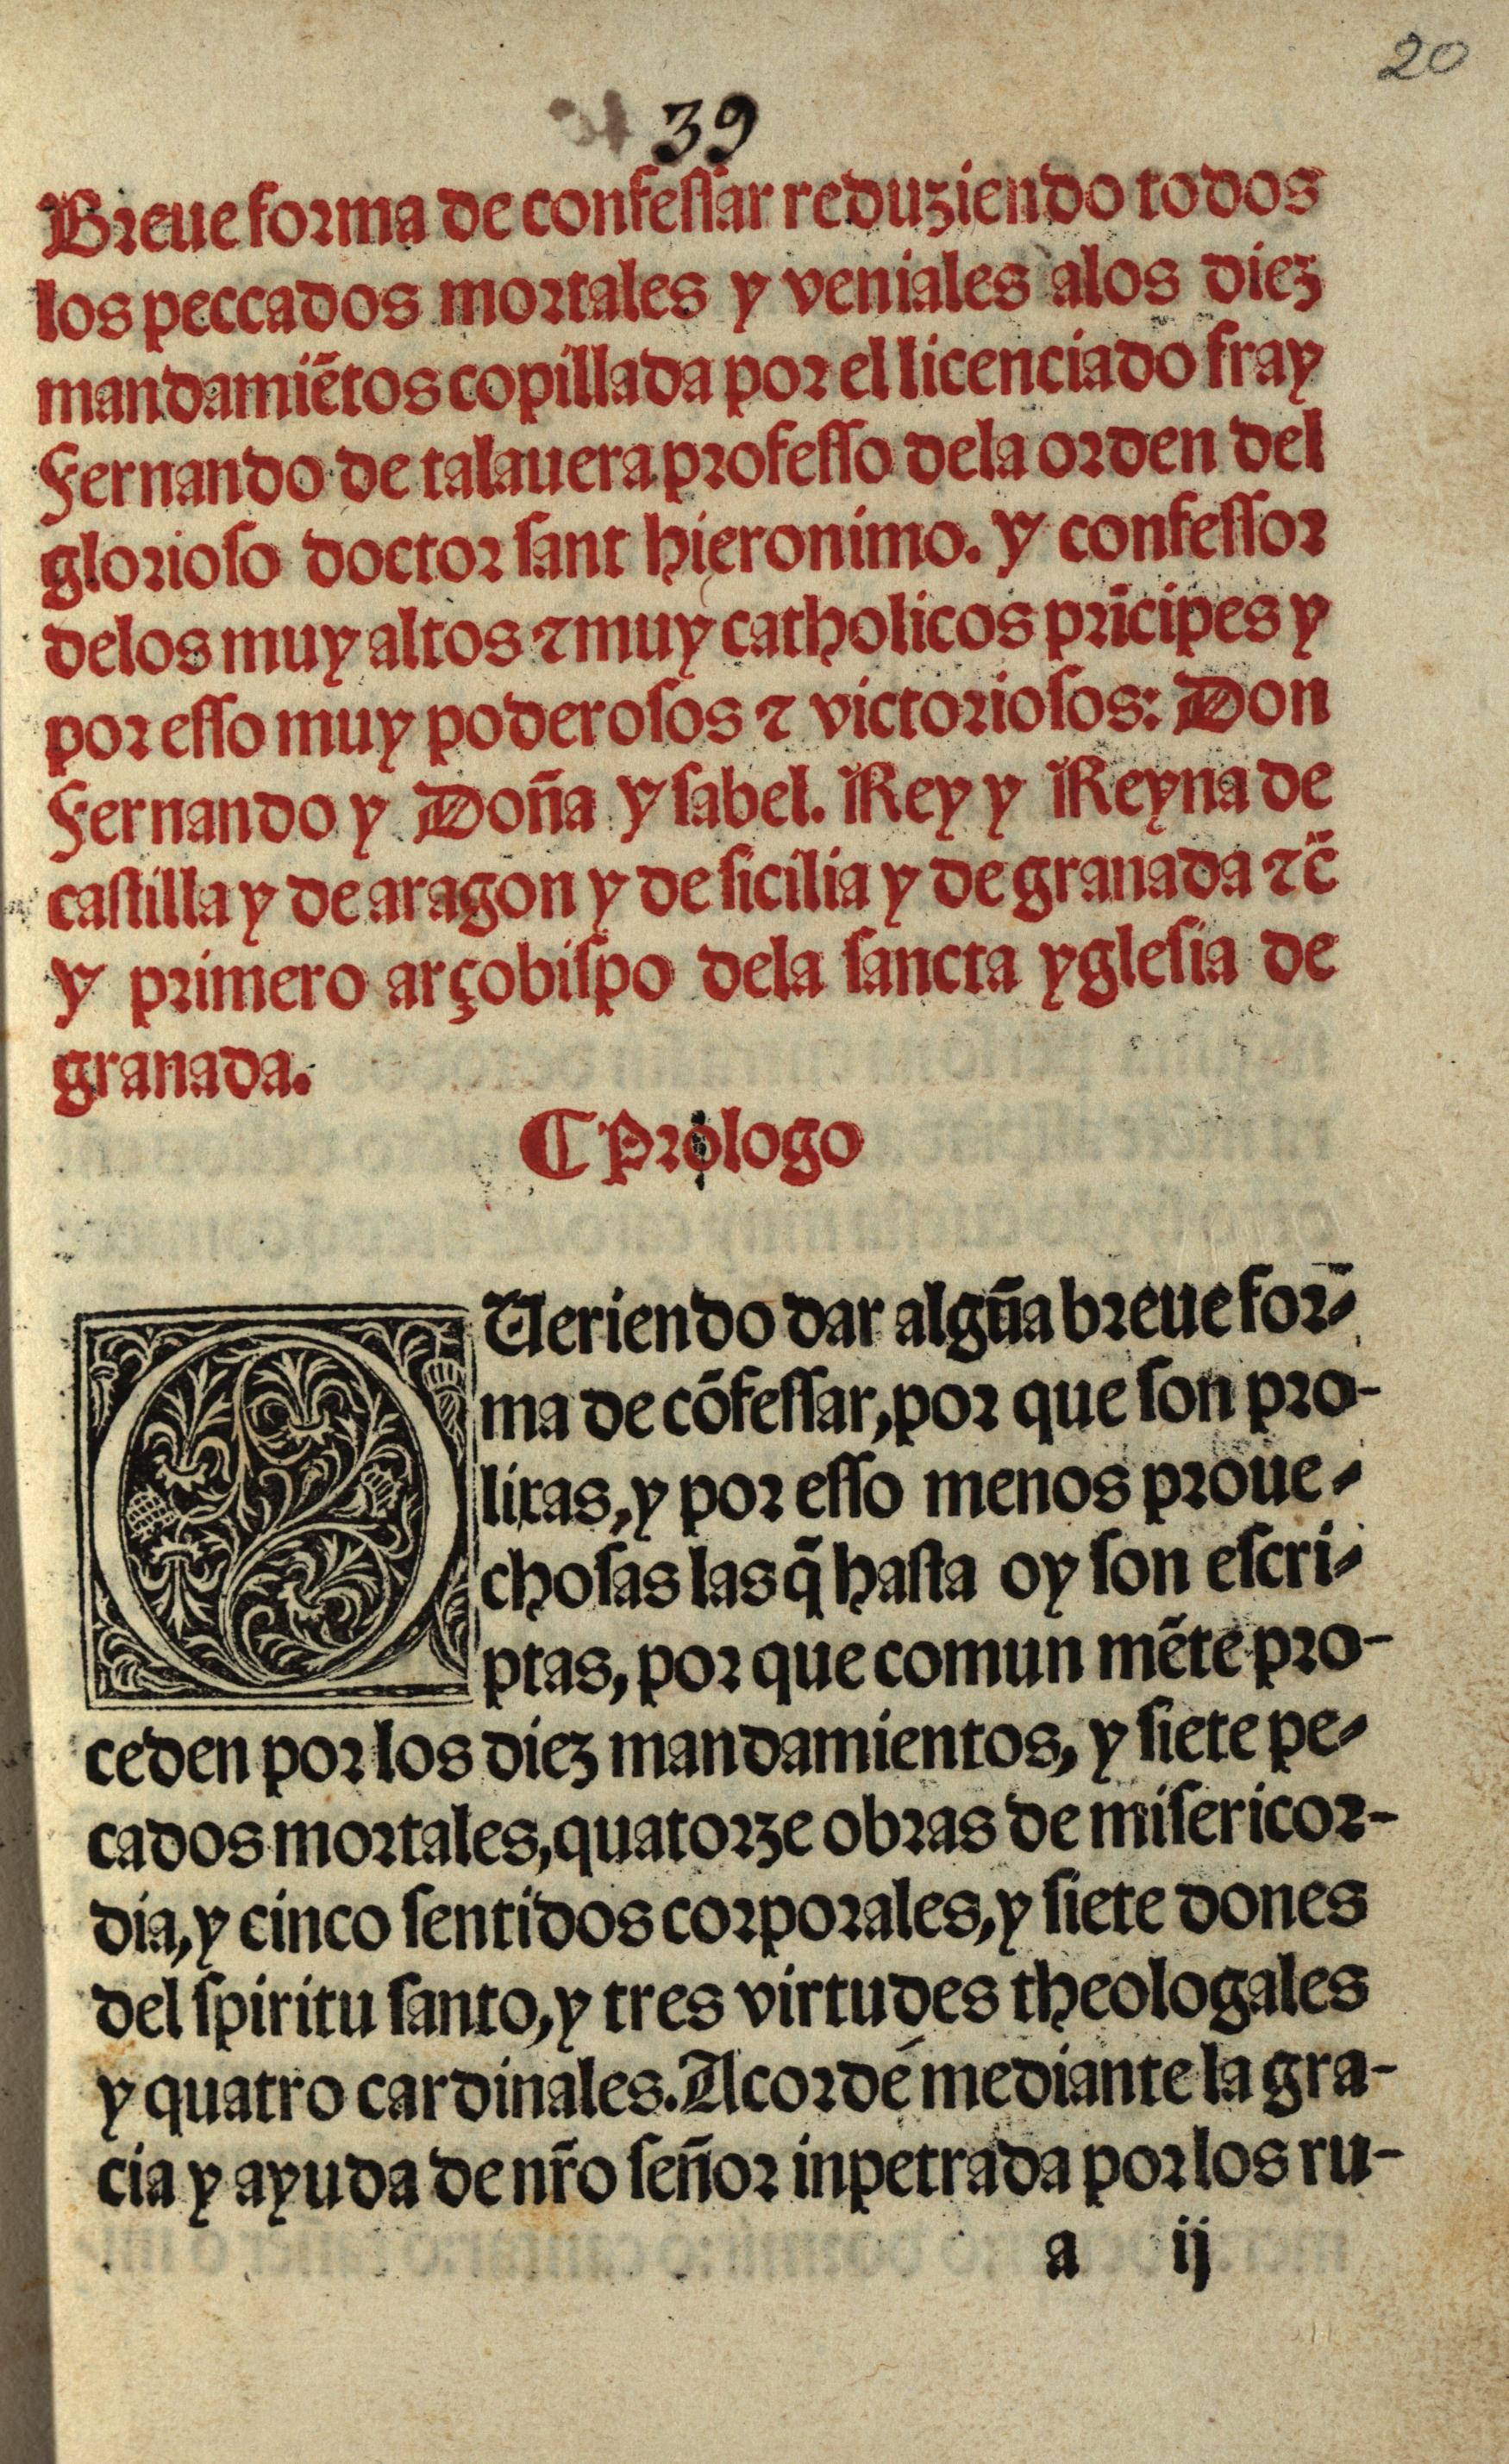 20
39
Breue forma de confessar reduziendo todos
los peccados mortales y veniales alos diez
mandamiẽtos copillada por el licenciado fray
Fernando de talauera professo dela orden del
glorioso doctor sant hieronimo. Y confessor
delos muy altos ⁊ muy catholicos prĩcipes y
por esso muy poderosos ⁊ victoriosos: Don
Fernando y Doña Ysabel. Rey y Reyna de
castilla y de aragon y de sicilia y de granada ⁊c̃
Y primero arçobispo dela sancta yglesia de
granada.
¶ Prologo
QUeriendo dar algũa breue for-
ma de cõfessar, por que son pro-
lixas, y por esso menos proue-
chosas las q̃ hasta oy son escri-
ptas, por que comun mẽte pro-
ceden por los diez mandamientos, y siete pe-
cados mortales, quatorze obras de misericor-
dia, y cinco sentidos corporales, y siete dones
del spiritu santo, y tres virtudes theologales
y quatro cardinales. Acordé mediante la gra-
cia y ayuda de nr̃o señor inpetrada por los ru-
a ij